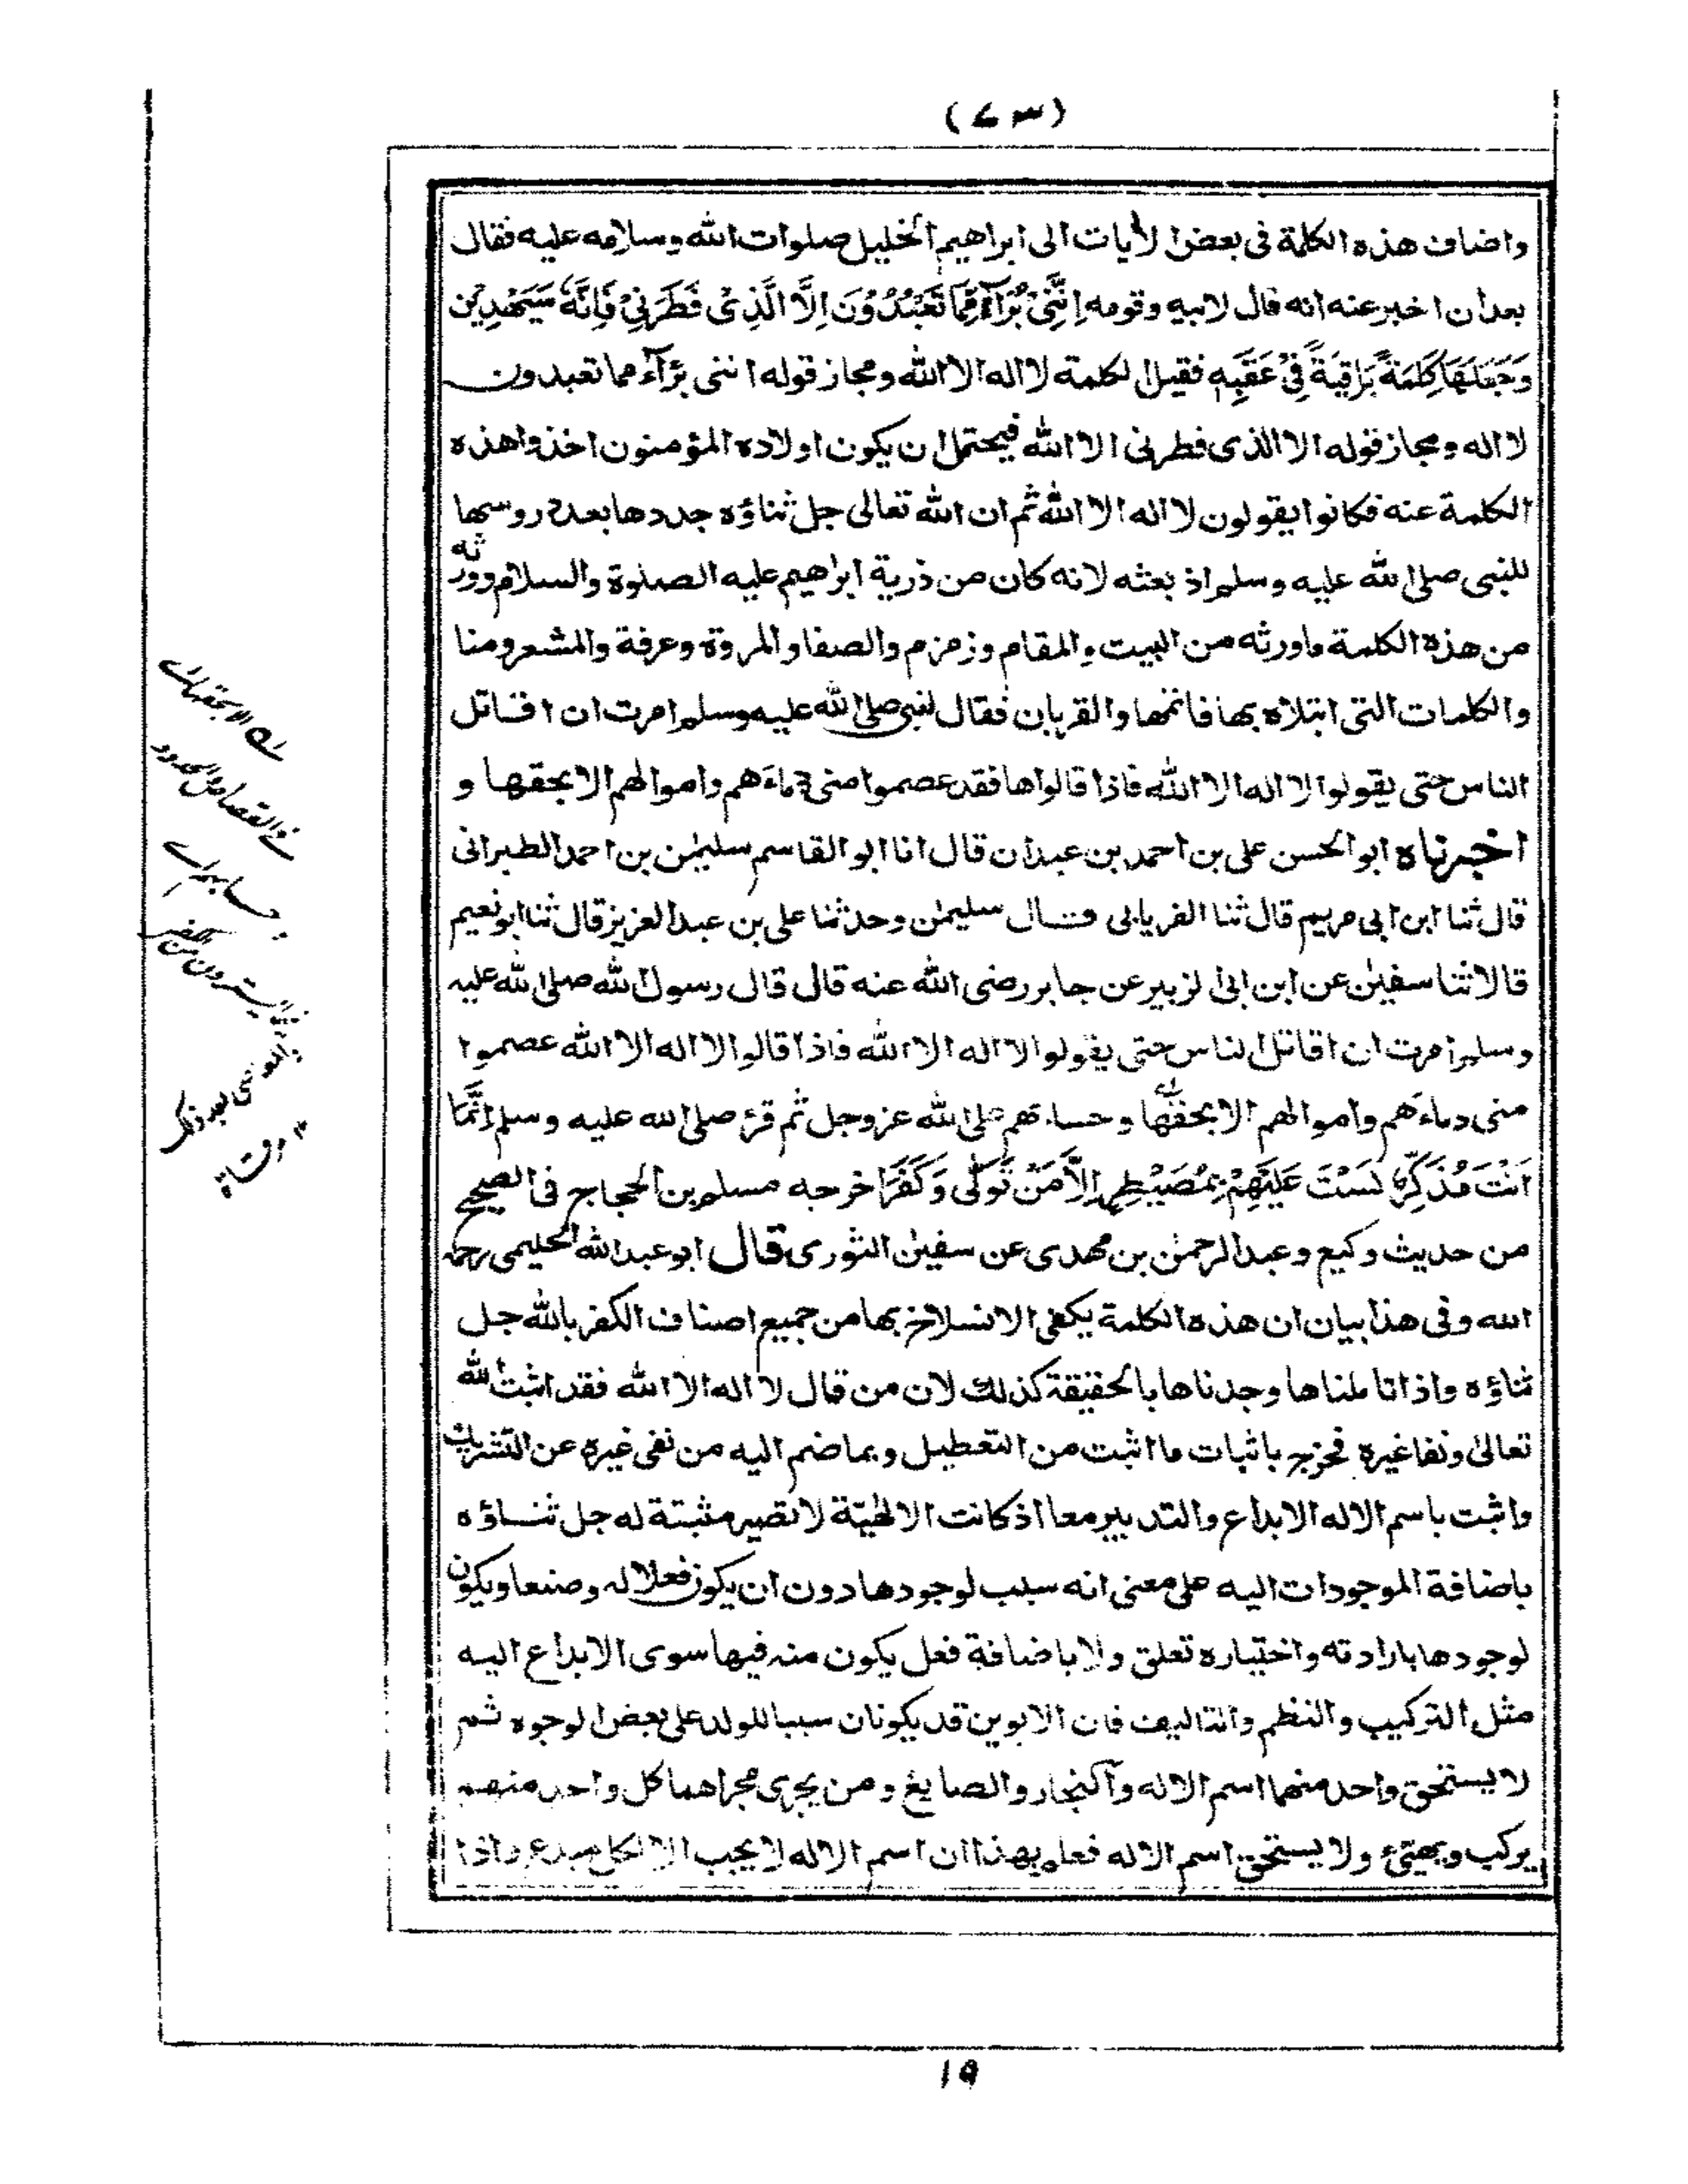 (٧٣)
واضاف هذه الكلمة فى بعض الأيات الى ابراهيم الخليل صلوات الله وسلامه عليه فقال
بعد ان اخبر عنه انه قال لابيه وقومه اِنَّنِىْ بُرَآءٌ مِّمَّا تَعْبُدُوْنَ اِلَّا الَّذِىْ فَطَرَنِىْ فَاِنَّهٗ سَيَهْدِيْنِ
وَجَعَلَهَا كَلِمَةً بَاقِيَةً فِىْ عَقِبِهٖ فقيل الكلمة لا اله الا الله ومجاز قوله اننى برآء مما تعبدون
لا اله ومجاز قوله الا الذى فطرنى الا الله فيحتمل ان يكون اولاده المؤمنون اخذوا هذه
الكلمة عنه فكانوا يقولون لا اله الا الله ثم ان الله تعالى جل ثناؤه جددها بعد دروسها
للنبى صلى الله عليه وسلم اذ بعثه لانه كان من ذرية ابراهيم عليه الصلوة والسلام وورثه
من هذه الكلمة ماورثه من البيت والمقام وزمزم والصفا والمروة وعرفة والمشعر ومنا
والكلمات التى ابتلاه بها فاتمها والقربان فقال لنبى صلى الله عليه وسلم امرت ان اقاتل
الناس حتى يقولوا لا اله الا الله فاذا قالوها فقد عصموا منى دماءهم واموالهم الا بحقها و
اخبرناه ابو الحسن على بن احمد بن عبدان قال انا ابو القاسم سليمٰن بن احمد الطبرانى
قال ثنا ابن ابى مريم قال ثنا الفريابى قال سليمٰن وحدثنا على بن عبد العزيز قال ثنا ابو نعيم
قالا ثنا سفيٰن عن ابن ابى الزبير عن جابر رضى الله عنه قال قال رسول الله صلى الله عليه
وسلم امرت ان اقاتل الناس حتى يقولوا لا اله الا الله فاذا قالوا لا اله الا الله عصموا
منى دماءهم واموالهم الا بحقها وحسابهم على الله عزوجل ثم قرء صلى الله عليه وسلم اِنَّمَا
اَنْتَ مُذَكِّرٌ لَسْتَ عَلَيْهِمْ بِمُصَيْطِرٍ اِلَّا مَنْ تَوَلّٰى وَكَفَرَ اخرجه مسلم بن الحجاج فى الصحيح
من حديث وكيع وعبد الرحمٰن بن مهدى عن سفيٰن الثورى قال ابو عبد الله الحليمى رحمه
الله وفى هذا بيان ان هذه الكلمة يكفى الانسلاخ بها من جميع اصناف الكفر بالله جل
ثناؤه واذا تاملناها وجدناها بالحقيقة كذلك لان من قال لا اله الا الله فقد اثبت الله
تعالى ونفا غيره فخرج باثبات ما اثبت من التعطيل وبما ضم اليه من نفى غيره عن التشريك
واثبت باسم الاله الابداع والتدبير معا اذ كانت الالهيّة لا تصير مثبتة له جل ثناؤه
باضافة الموجودات اليه على معنى انه سبب لوجودها دون ان يكون فعلا له وصنعا ويكون
لوجودها بارادته واختياره تعلق ولا باضافة فعل يكون منه فيها سوى الابداع اليه
مثل التركيب والنظم والتاليف فان الابوين قد يكونان سببا للولد على بعض الوجوه ثم
لا يستحق واحد منهما اسم الاله وآلنجار والصايغ ومن يجرى مجراهما كل واحد منهم
يركب ويهيئ ولا يستحق اسم الاله فعلم بهذا ان اسم الاله لا يجب الا لكل مبدع واذا
١٩